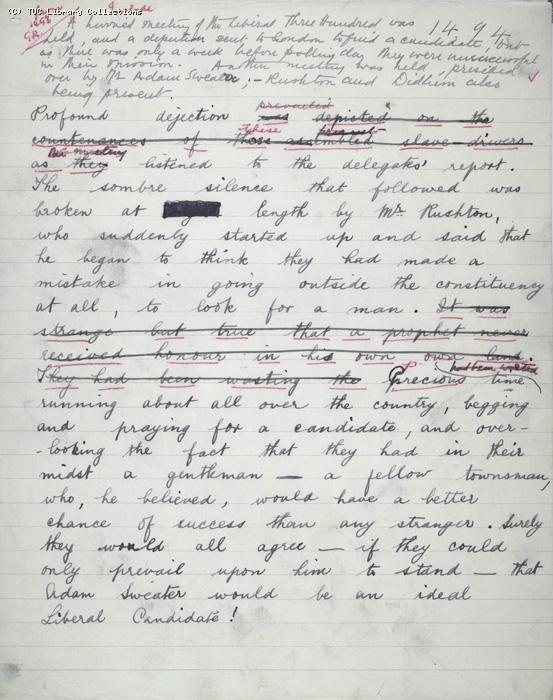 (C) TUC Library Collections
1493
G.R.
1494
A hurried meeting of the Liberal Three Hundred was
held, and a deputation sent to London to find a candidate, but
as there was only a week before polling day they were unsuccessful
in their mission. Another meeting was held, presided
over by Mr Adam Sweater; - Rushton and Didlum also
being present.
prevailed
Profound dejection was depicted on the
these
countenances of those assembled slave-drivers
the meeting
as they listened to the delegates' report.
The sombre silence that followed was
broken at length by Mr. Rushton,
who suddenly started up and said that
he began to think they had made a
mistake in going outside the constituency
at all, to look for a man. It was
strange but true that a prophet never
received honour in his own own land.
had been wasted
They had been wasting the Precious time
running about all over the country, begging
and praying for a candidate, and over-
-looking the fact that they had in their
midst a gentleman — a fellow townsman,
who, he believed, would have a better
chance of success than any stranger. Surely
they would all agree — if they could
only prevail upon him to stand — that
Adam Sweater would be an ideal
Liberal Candidate!